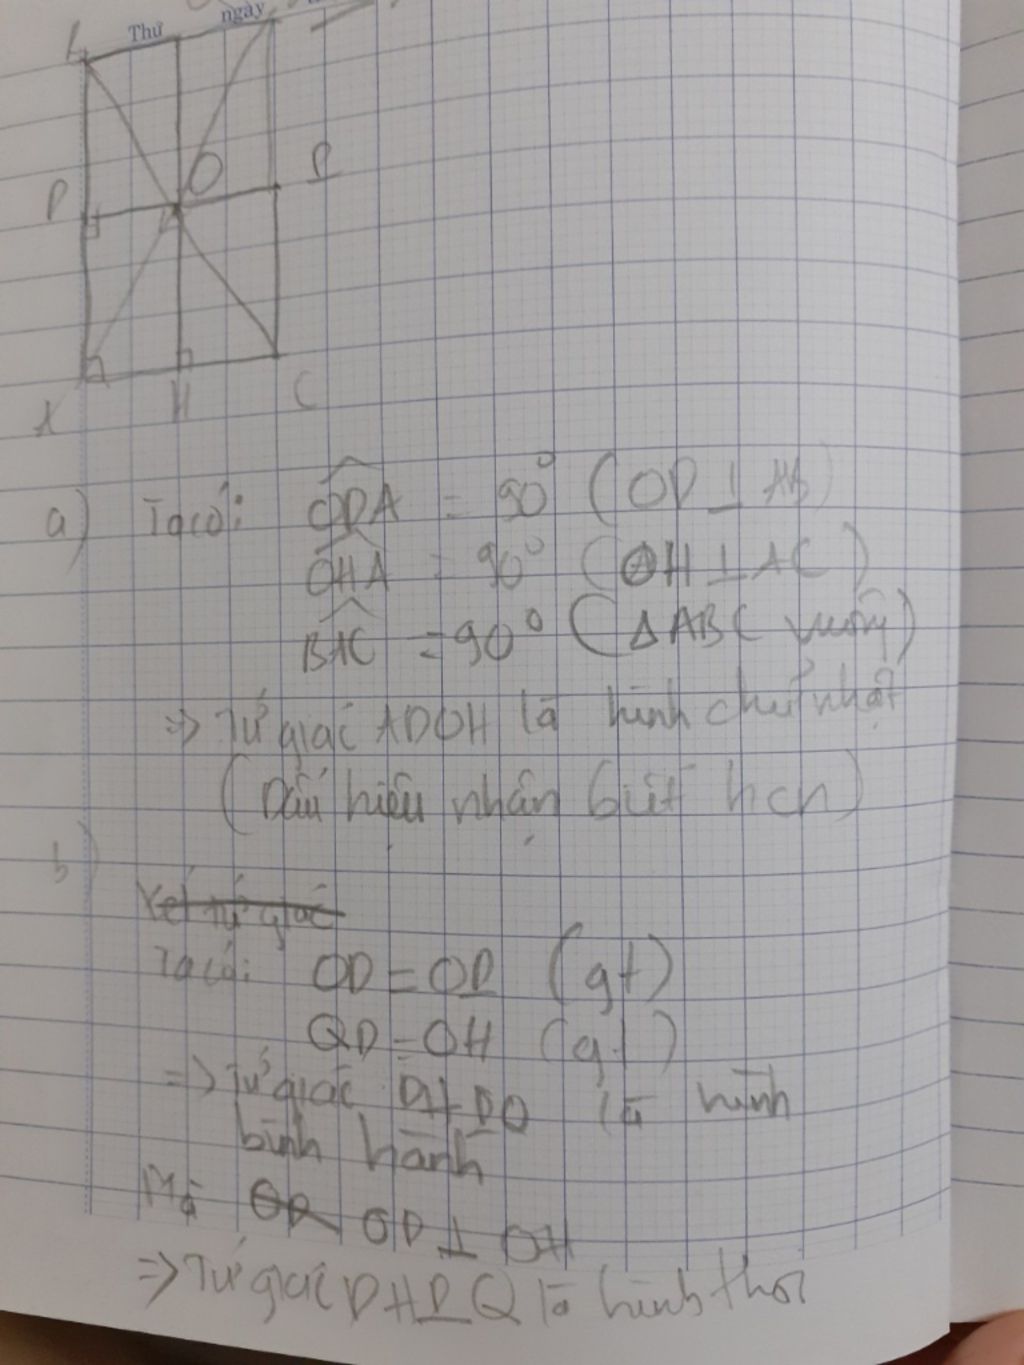 Thứ ngày
O
D P
A H C
a) Ta có: ODA = 90° (OD ⊥ AB)
OHA = 90° (OH ⊥ AC)
BAC = 90° (Δ ABC vuông)
=> Tứ giác ADOH là hình chữ nhật
(Dấu hiệu nhận biết hcn)
b)
Xét tứ giác
Ta có: OD = OP (gt)
QO = OH (gt)
=> Tứ giác DHPQ là hình
bình hành
Mà OD ⊥ OH
=> Tứ giác DHPQ là hình thoi